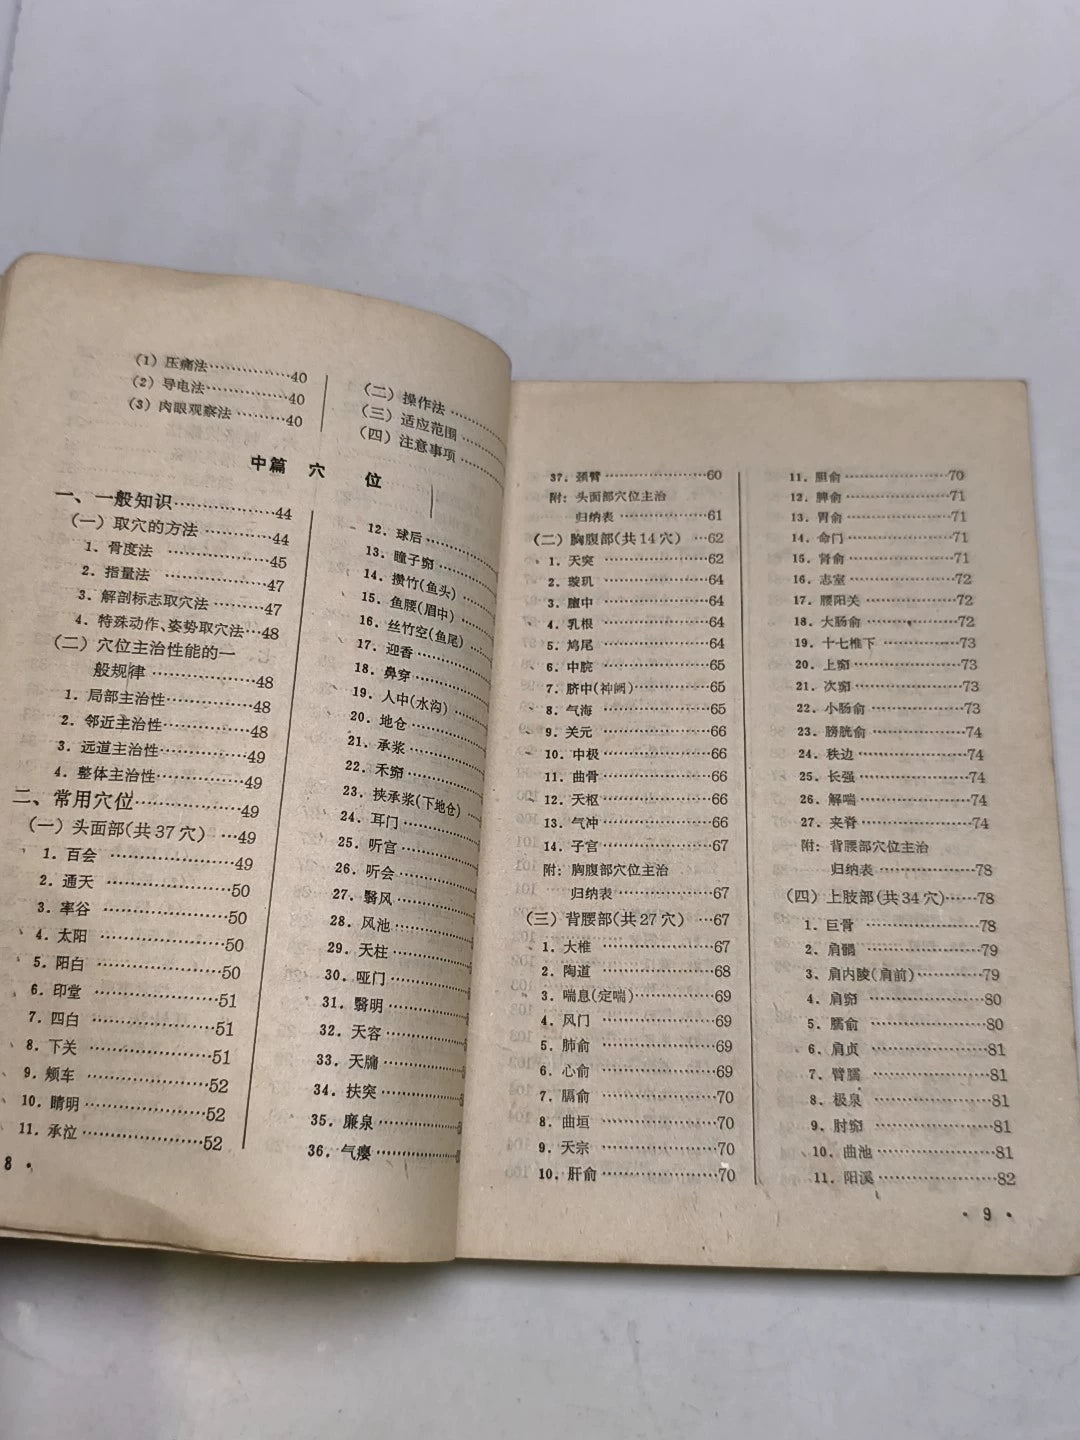 (1) 压痛法……………40
(2) 导电法……………40
(3) 肉眼观察法………40
(二) 操作法………
(三) 适应范围………
(四) 注意事项………
中篇 穴 位
一、一般知识……………44
(一) 取穴的方法…………44
1. 骨度法……………45
2. 指量法……………47
3. 解剖标志取穴法………47
4. 特殊动作、姿势取穴法…48
(二) 穴位主治性能的一
般规律……………48
1. 局部主治性……………48
2. 邻近主治性……………48
3. 远道主治性……………49
4. 整体主治性……………49
二、常用穴位……………49
(一) 头面部(共37穴)…49
1. 百会……………49
2. 通天……………50
3. 率谷……………50
4. 太阳……………50
5. 阳白……………50
6. 印堂……………51
7. 四白……………51
8. 下关……………51
9. 颊车……………52
10. 睛明……………52
11. 承泣……………52
12. 球后………
13. 瞳子窌………
14. 攒竹(鱼头)………
15. 鱼腰(眉中)………
16. 丝竹空(鱼尾)………
17. 迎香………
18. 鼻穿………
19. 人中(水沟)………
20. 地仓………
21. 承浆………
22. 禾窌………
23. 挟承浆(下地仓)………
24. 耳门………
25. 听宫………
26. 听会………
27. 翳风………
28. 风池………
29. 天柱………
30. 哑门………
31. 翳明………
32. 天容………
33. 天牖………
34. 扶突………
35. 廉泉………
36. 气瘿………
8 ·
37. 颈臂……………60
附: 头面部穴位主治
归纳表……………61
(二) 胸腹部(共14穴)…62
1. 天突……………62
2. 璇玑……………64
3. 膻中……………64
4. 乳根……………64
5. 鸠尾……………64
6. 中脘……………65
7. 脐中(神阙)……………65
8. 气海……………65
9. 关元……………66
10. 中极……………66
11. 曲骨……………66
12. 天枢……………66
13. 气冲……………66
14. 子宫……………67
附: 胸腹部穴位主治
归纳表……………67
(三) 背腰部(共27穴)…67
1. 大椎……………67
2. 陶道……………68
3. 喘息(定喘)……………69
4. 风门……………69
5. 肺俞……………69
6. 心俞……………69
7. 膈俞……………70
8. 曲垣……………70
9. 天宗……………70
10. 肝俞……………70
11. 胆俞……………70
12. 脾俞……………71
13. 胃俞……………71
14. 命门……………71
15. 肾俞……………71
16. 志室……………72
17. 腰阳关……………72
18. 大肠俞……………72
19. 十七椎下……………73
20. 上窌……………73
21. 次窌……………73
22. 小肠俞……………73
23. 膀胱俞……………74
24. 秩边……………74
25. 长强……………74
26. 解喘……………74
27. 夹脊……………74
附: 背腰部穴位主治
归纳表……………78
(四) 上肢部(共34穴)……78
1. 巨骨……………78
2. 肩髃……………79
3. 肩内陵(肩前)……………79
4. 肩窌……………80
5. 臑俞……………80
6. 肩贞……………81
7. 臂臑……………81
8. 极泉……………81
9. 肘窌……………81
10. 曲池……………81
11. 阳溪……………82
· 9 ·